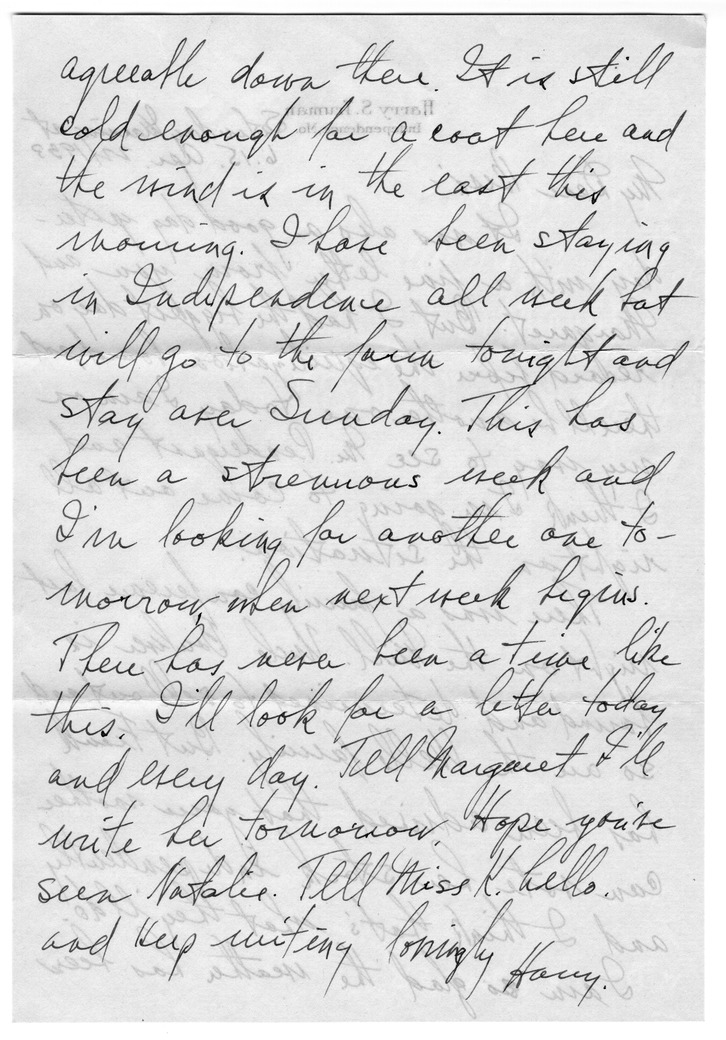 agreeable down there. It is still
cold enough for a coat here and
the wind is in the east this
morning. I have been staying
in Independence all week but
will go to the farm tonight and
stay over Sunday. This has
been a strenuous week and
I'm looking for another one to-
morrow, when next week begins.
There has never been a time like
this. I'll look for a letter today
and every day. Tell Margaret I'll
write her tomorrow. Hope you've
seen Natalie. Tell Miss K. hello.
and keep writing lovingly Harry.